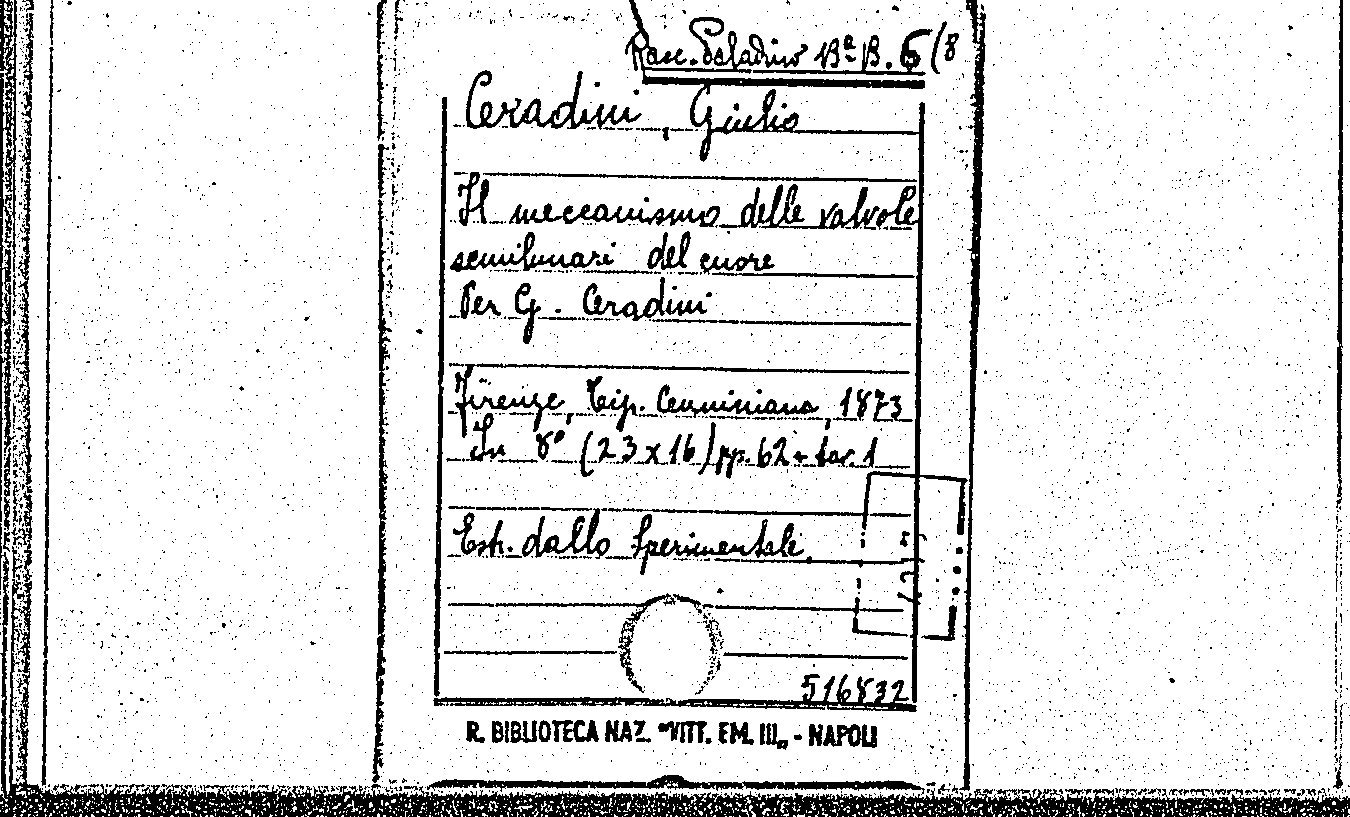 Racc. Paladino Bª B. 6(8
Ceradini, Giulio
Il meccanismo delle valvole
semilunari del cuore
Per G. Ceradini
Firenze, Tip. Cenniniana, 1873
In 8º (23 x 16) pp. 62 + tav. 1
Estr. dallo Sperimentale.
516832
R. BIBLIOTECA NAZ. "VITT. EM. III„ - NAPOLI